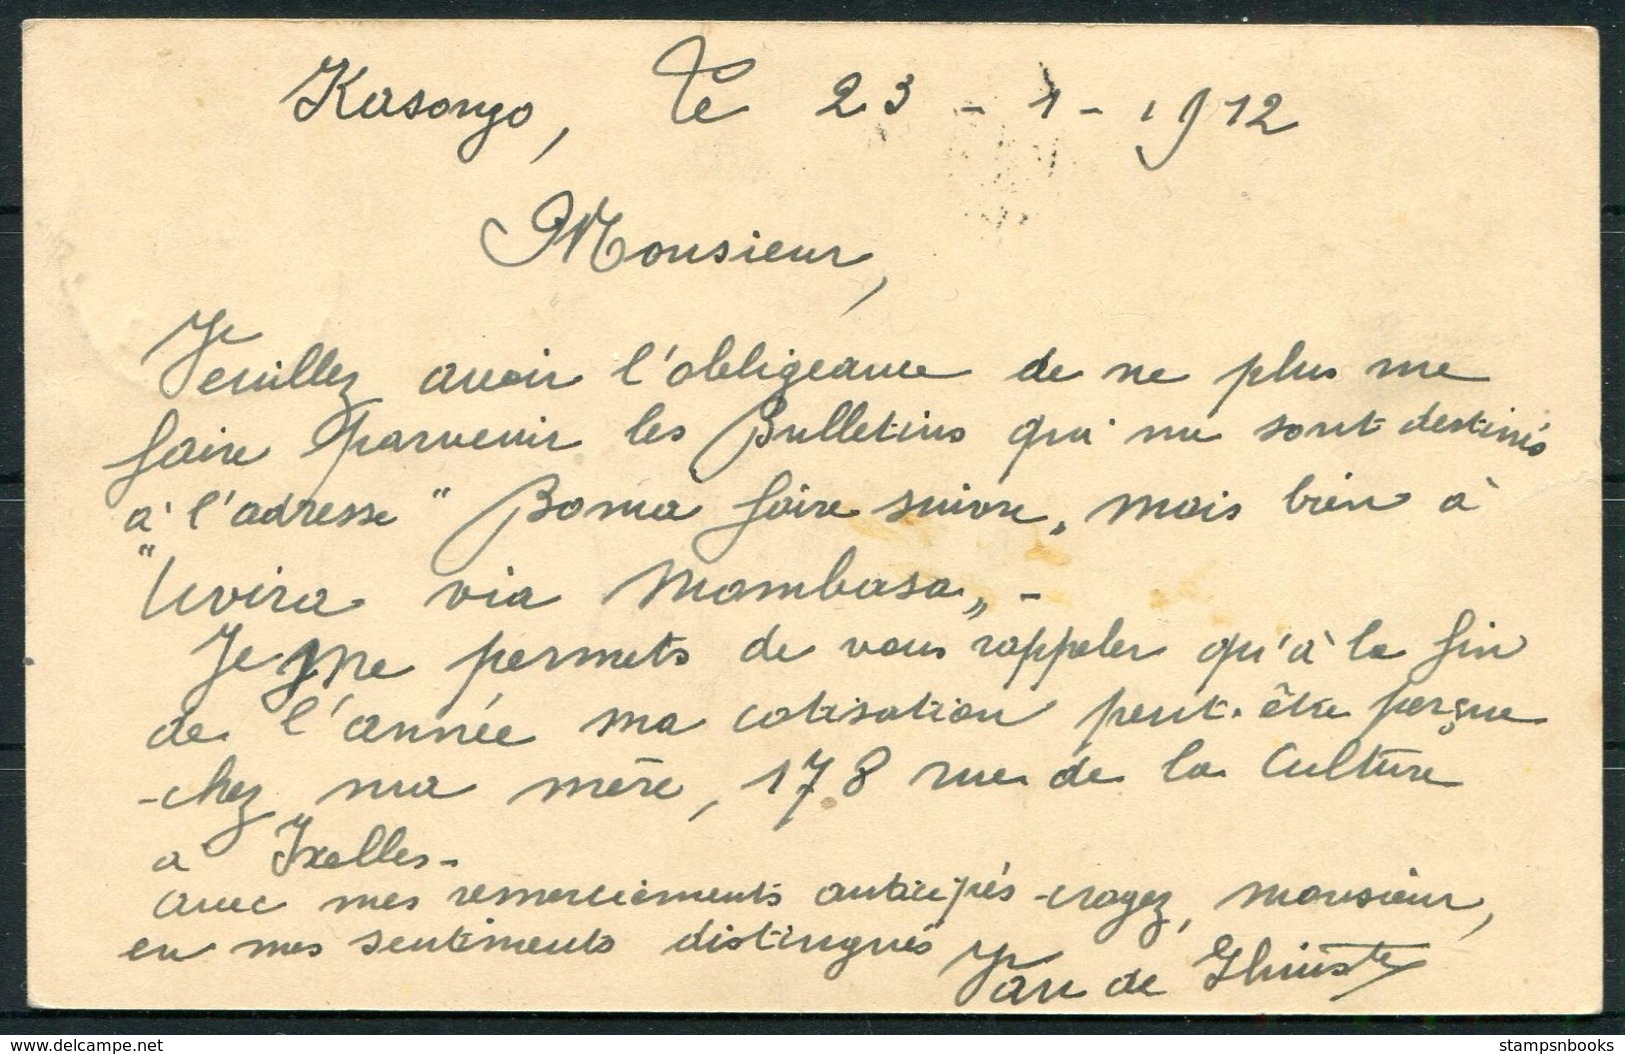 Kasongo, le 23-1-1912
Monsieur,
Veuillez avoir l'obligeance de ne plus me
faire parvenir les Bulletins qui me sont destinés
à l'adresse "Boma faire suivre", mais bien à
"Uvira via Mombasa" -
Je me permets de vous rappeler qu'à la fin
de l'année ma cotisation peut-être perçue
chez ma mère, 178 rue de la Culture
à Ixelles-
avec mes remerciements anticipés croyez, monsieur,
en mes sentiments distingués
Van de Ghinste
delcampe.net
stampsnbooks